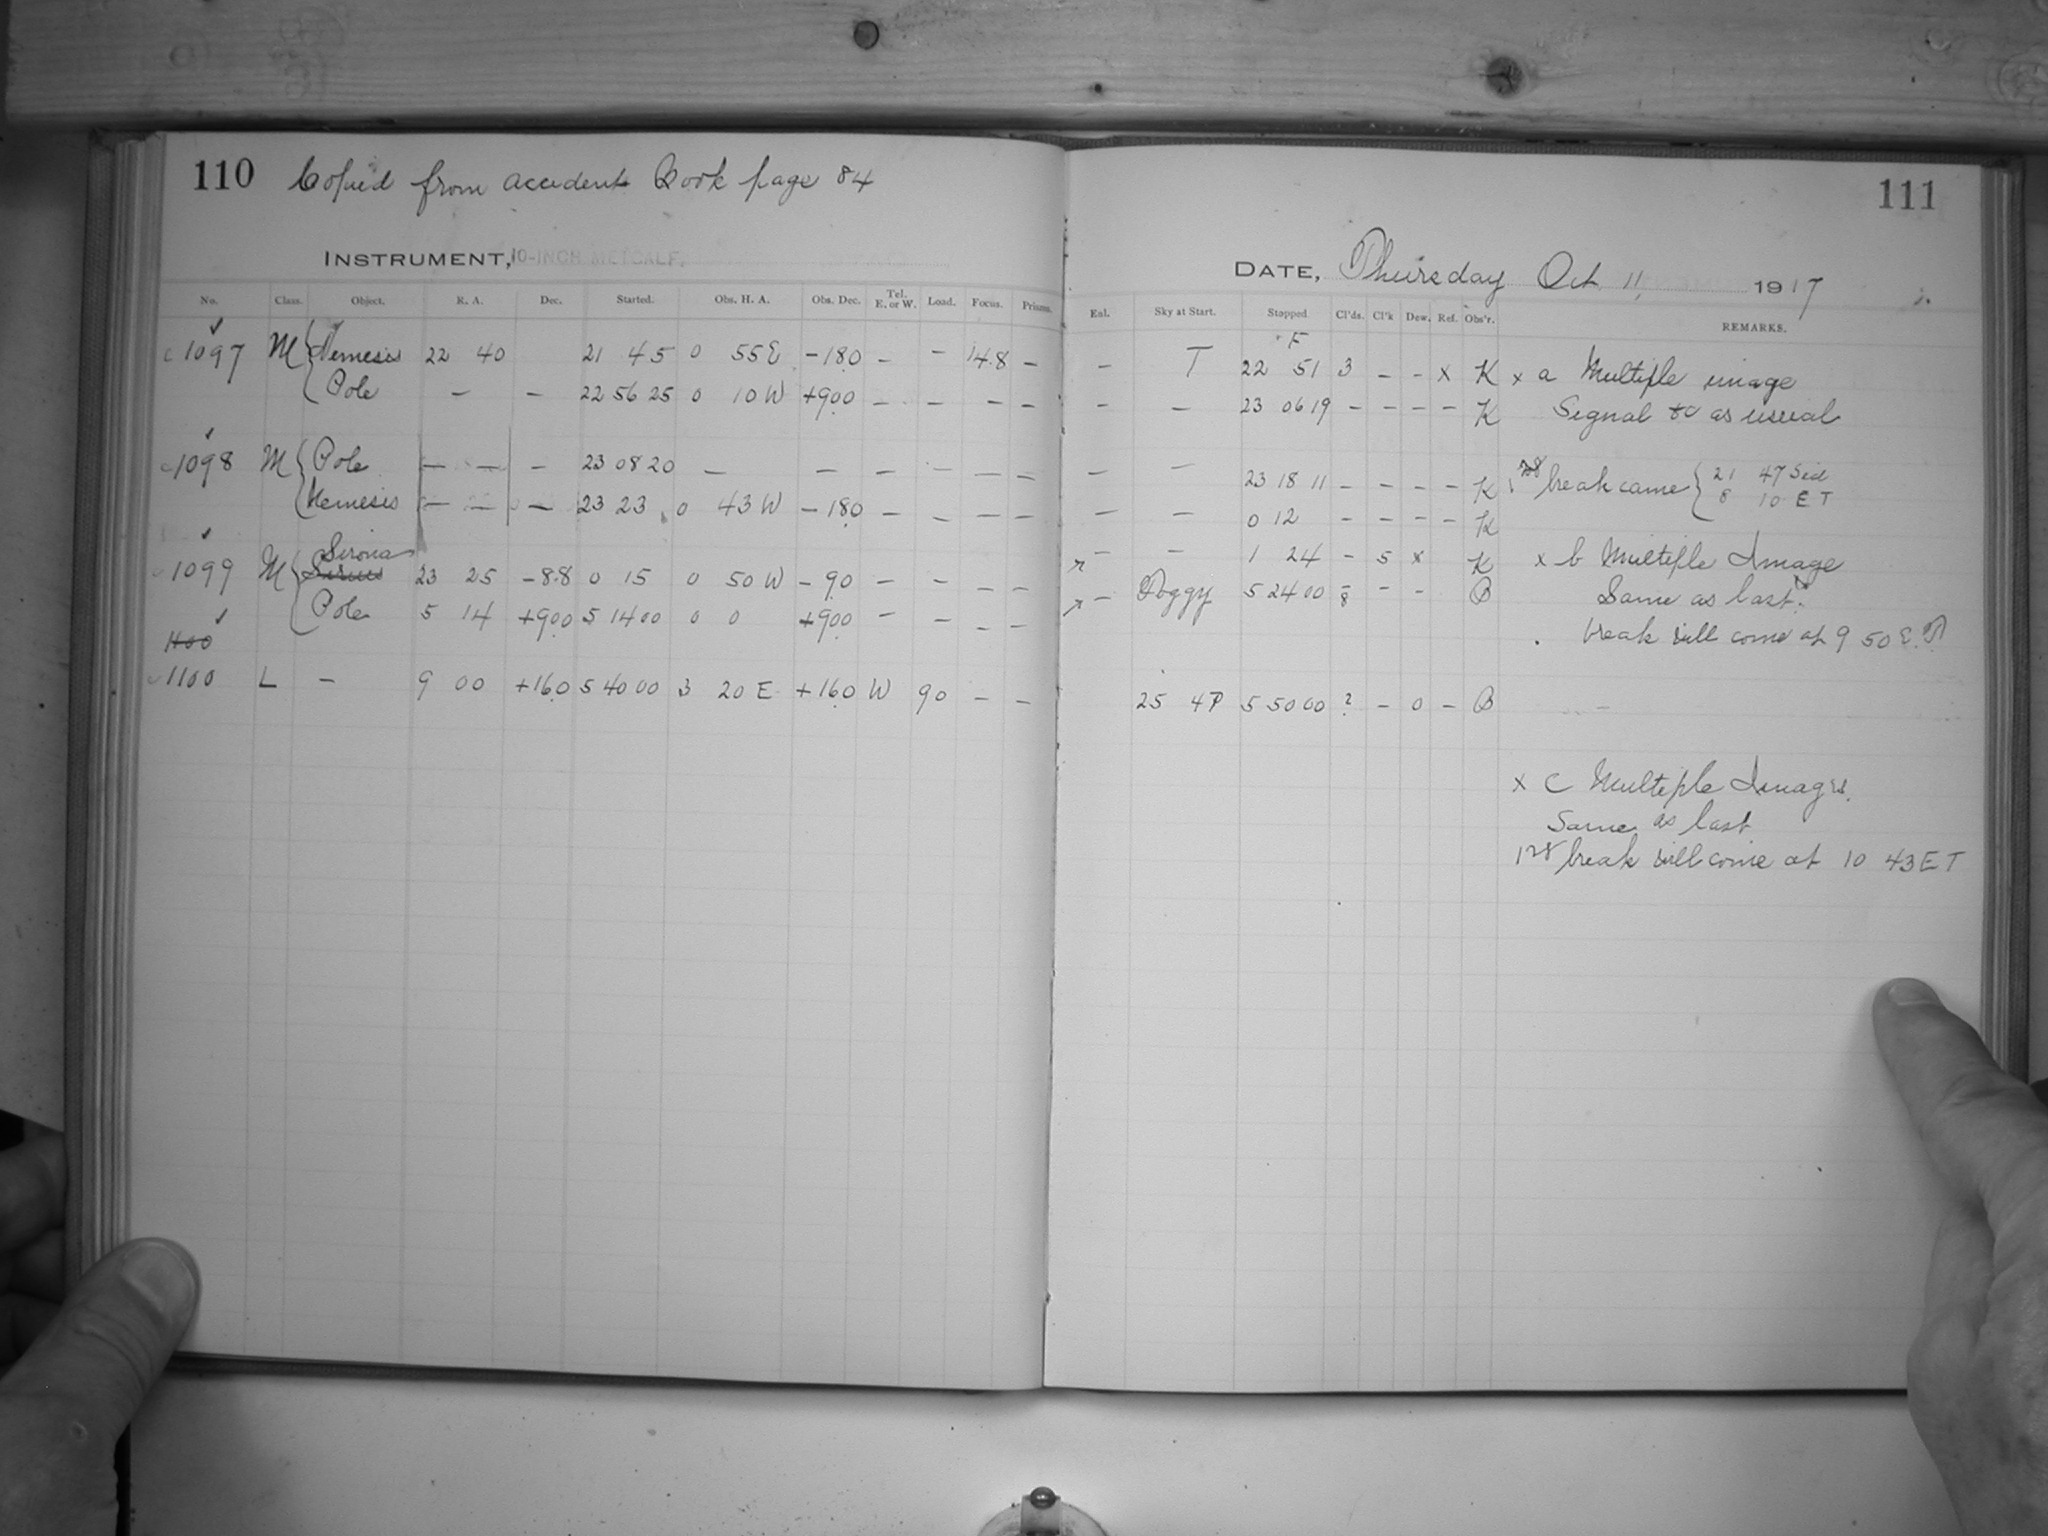 110 Copied from accident Book page 84
INSTRUMENT, 10-INCH METCALF.
No. Class. Object. R. A. Dec. Started. Obs. H. A. Obs. Dec. Tel. E. or W. Load. Focus. Prisms.
1097 M Nemesis 22 40 21 45 0 55 E -18.0 - - 14.8 -
Pole - - 22 56 25 0 10 W +90.0 - - - -
1098 M Pole - - - 23 08 20 - - - - - -
Nemesis - - - 23 23 0 43 W -18.0 - - - -
Sirona
1099 M Sirius 23 25 -8.8 0 15 0 50 W -9.0 - - - -
Pole 5 14 +90.0 5 14 00 0 0 +90.0 - - - -
1100
1100 L - 9 00 +16.0 5 40 00 3 20 E +16.0 W 90 - -
111
DATE, Thursday Oct 11, 1917
Eal. Sky at Start. Stopped Cl'ds. Cl'k Dew. Ref. Obs'r. REMARKS.
F
- T 22 51 3 - - x K x a Multiple image
- - 23 06 19 - - - - K Signal &c as usual
- - 23 18 11 - - - - K break came 21 47 Sid
8 10 E T
- - 0 12 - - - - K
- - 1 24 - 5 x K x b Multiple Image
- Foggy 5 24 00 8 - - B Same as last.
break will come at 9 50 E.T.
25 4P 5 50 00 2 - 0 - B
x c Multiple Images.
Same as last
break will come at 10 43 E T